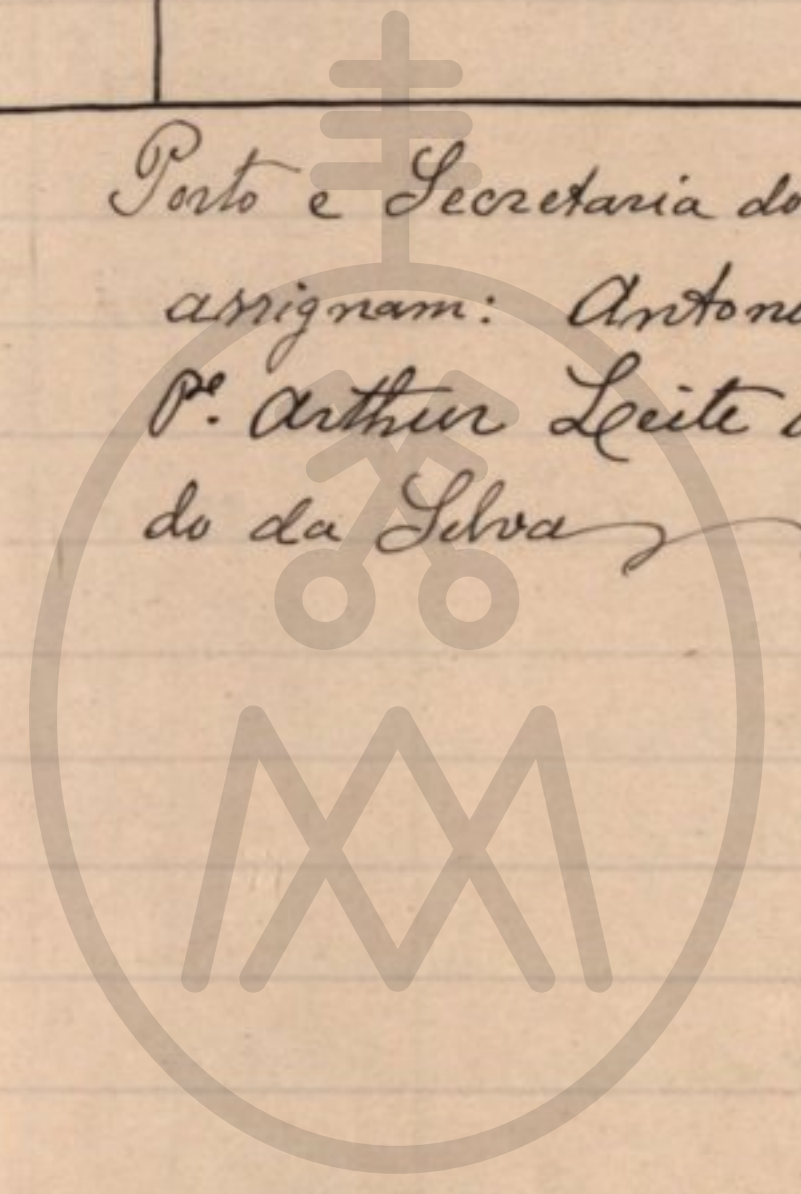 Porto e Secretaria do
assignam: Antoni
Pe. Arthur Leite
do da Silva